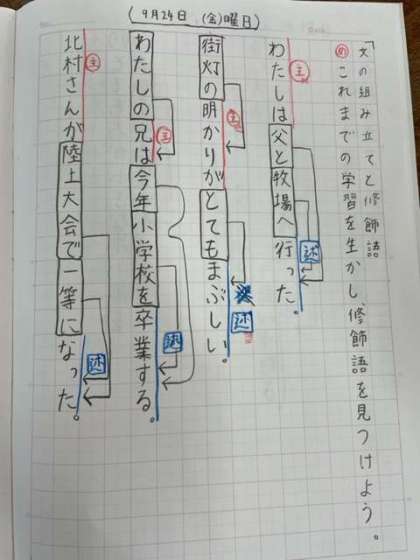 (9月24日 (金)曜日)
文の組み立てと修飾語
めこれまでの学習を生かし、修飾語を見つけよう。
わたしは父と牧場へ行った。
主
述
街灯の明かりがとてもまぶしい。
主
述
わたしの兄は今年小学校を卒業する。
主
述
北村さんが陸上大会で一等になった。
主
述